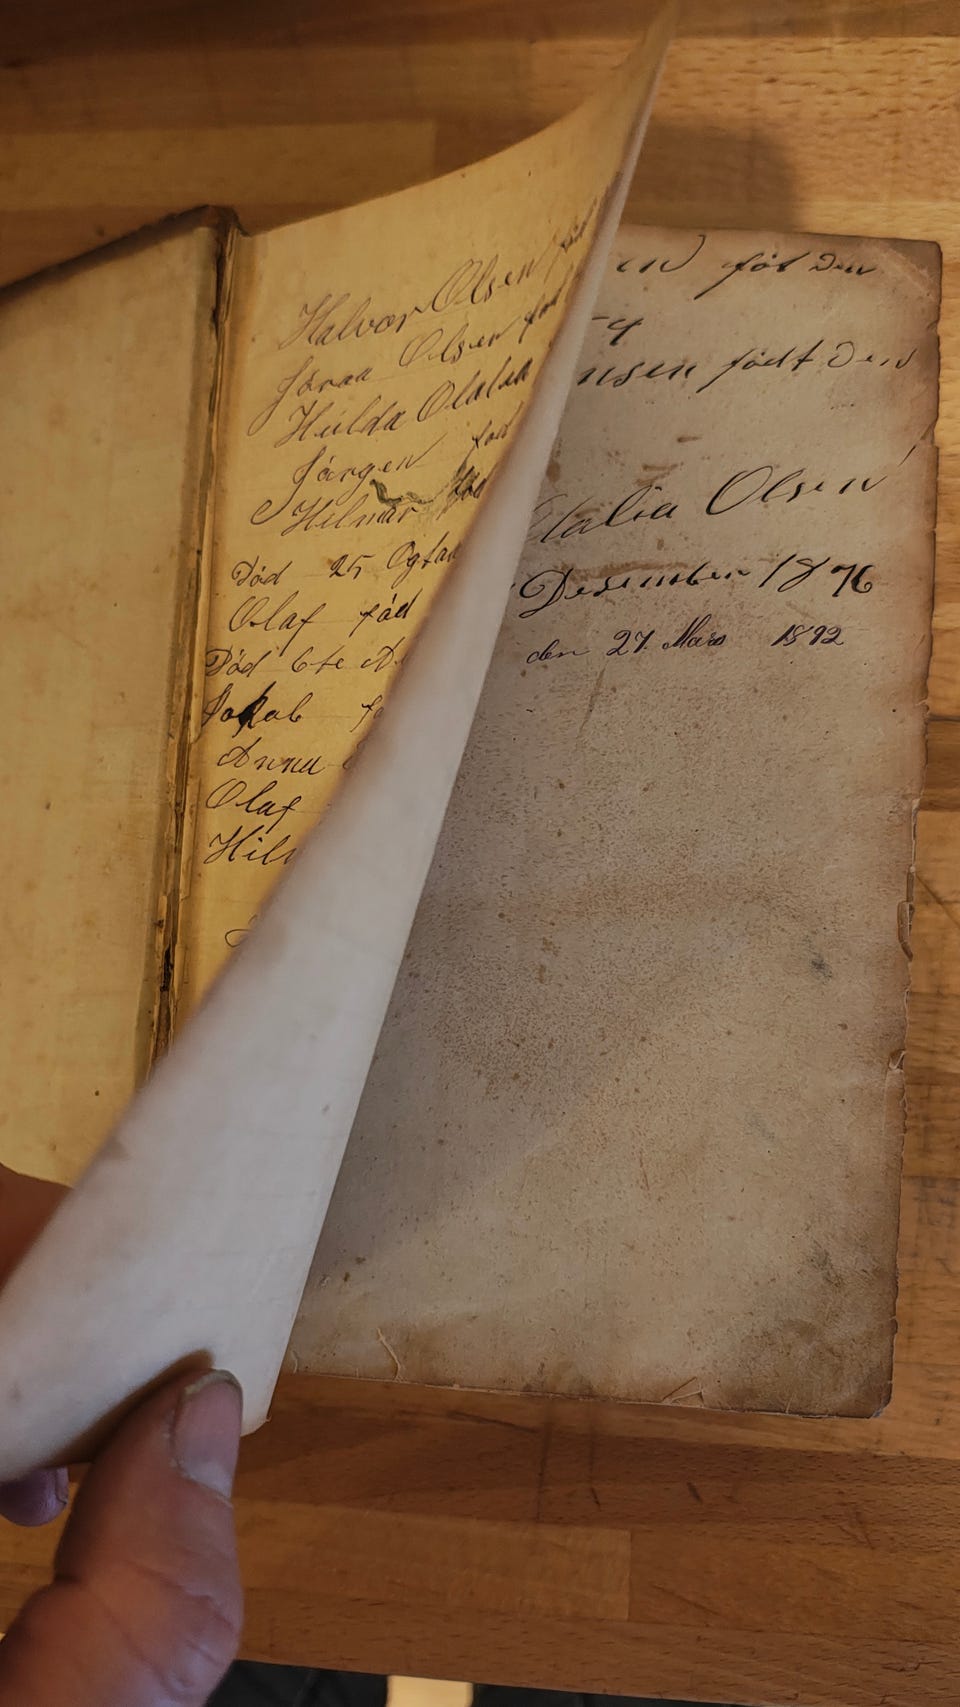 Halvor Olsen fød
Jöraa Olsen fød
Hulda Olalia
Jörgen fød
Hilmar fød
Död 25 Ogta
Olaf föd
Död 6te A
Jakob fø
Anna
Olaf
Hilm
en föt Den
54
nsen födt Den
talia Olsen
Desember 1876
den 27. Mars 1892